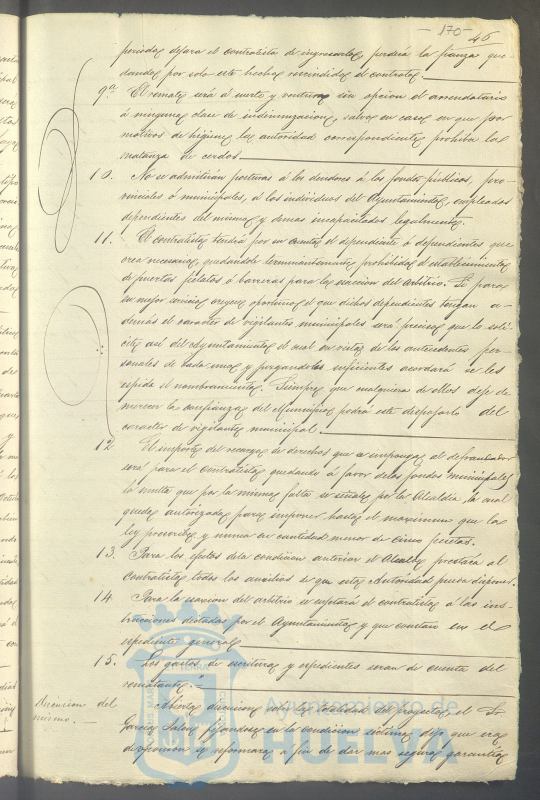 - 170 -
46
periodos dejara el contratista de ingresarlos, perderá la fianza que-
dando por solo este hecho rescindido el contrato.
9ª El remate será á suerte y ventura sin opcion el arrendatario
á ninguna clase de indemnizacion, salvo en caso en que por
motivos de higiene la autoridad correspondiente prohiba la
matanza de cerdos.
10. No se admitirán posturas á los deudores á los fondos públicos, pro-
vinciales ó municipales, á los individuos del Ayuntamiento, empleados
dependientes del mismo y demas incapacitados legalmente.
11. El contratista tendrá por su cuenta el dependiente ó dependientes que
crea necesarios, quedándole terminantemente prohibido el establecimiento
de puertas fielatos ó barreras para la exaccion del arbitrio. Si para
su mejor servicio creyere oportuno el que dichos dependientes tengan a-
demás el caracter de vigilantes municipales será preciso que lo soli-
cite asi del Ayuntamiento el cual en vista de los antecedentes per-
sonales de cada uno y juzgandolos suficientes acordará se les
expida el nombramiento. Siempre que cualquiera de ellos deje de
merecer la confianza del Municipio podrá este despojarlo del
caracter de vigilante municipal.
12 El importe del recargo de derechos que se imponga al defraudador
será para el contratista quedando á favor de los fondos municipales
la multa que por la misma falta se señale por la Alcaldia la cual
queda autorizada para imponer hasta el maximum que la
ley prescribe y nunca en cantidad menor de cinco pesetas.
13. Para los efectos de la condicion anterior el Alcalde prestará al
contratista todos los auxilios de que esta Autoridad pueda disponer.
14 Para la exaccion del arbitrio se sujetará el contratista á las ins-
trucciones dictadas por el Ayuntamiento y que constan en el
expediente general.
15. Los gastos de escritura y expedientes seran de cuenta del
rematante."
Discusion del
mismo. —
Abierta discusion sobre la totalidad del proyecto, el Sr.
Garcia fijandose en la condicion séptima dijo que era
de opinion se reformara á fin de dar mas segura garantia
Ayuntamiento de
HUELVA